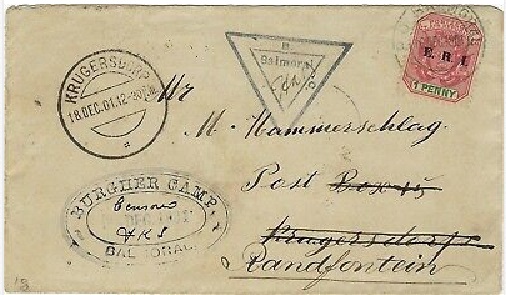 E. R. I.
1 PENNY
KRUGERSDORP
18.DEC.01.12
B
Balmoral
Mr
M. Hammerschlag.
Post Box 45
Krugersdorp
Randfontein
BURGHER CAMP
Censored
BALMORAL